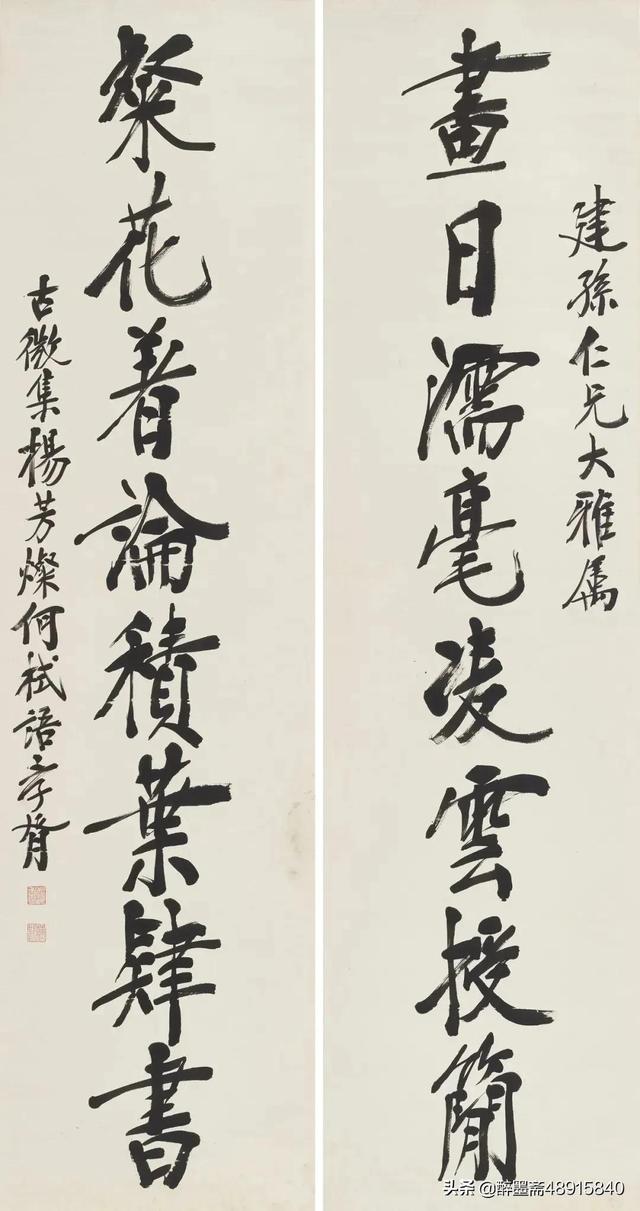 建孫仁兄大雅属
畫日濡毫凌雲授簡
粲花着論積葉肆書
古微集楊芳燦何栻語孝胥
头条 @醉墨斋48915840